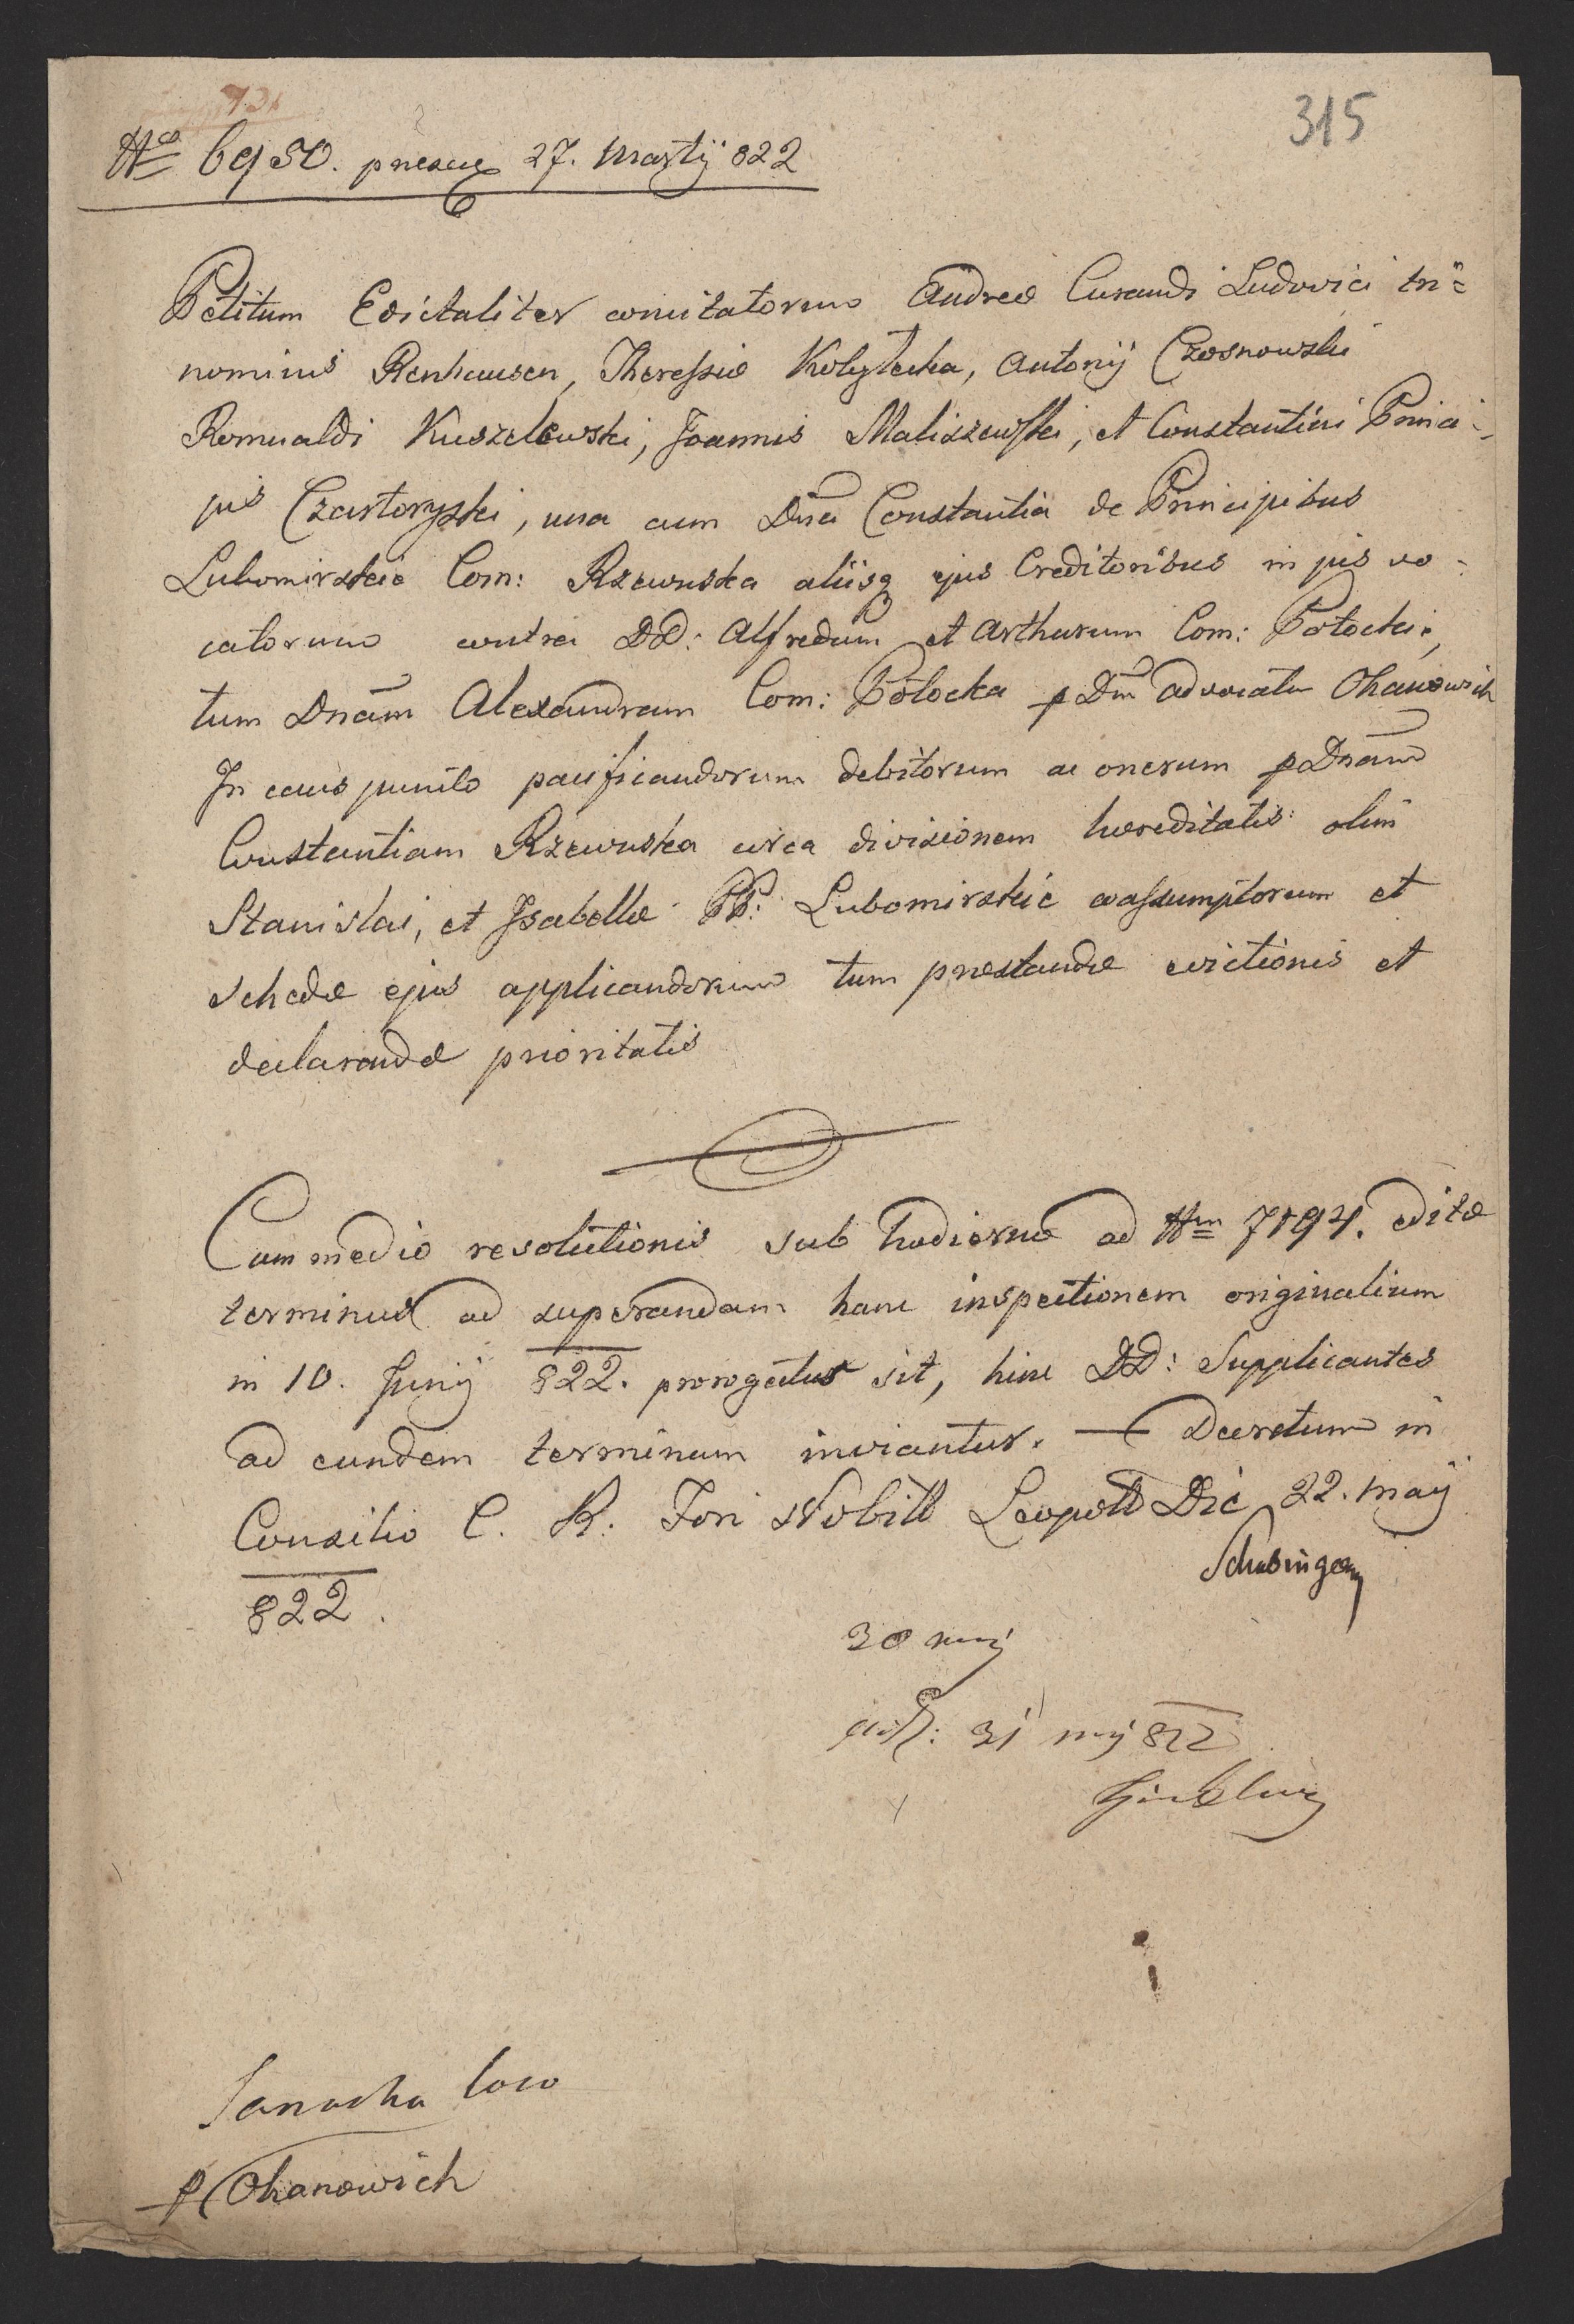 315
Nro 6950. praes 27. Martij 822
Petitum Edictaliter comitatorum Andreæ Curandi Ludovici tri=
nominis Renhausen, Theressiæ Kolytecka, Antonij Czosnowski
Romualdi Kuszelewski, Joannis Maliszewski, et Constantini Princi=
pis Czartoryski, una cum Dna Constantia de Principibus
Lubomirskie Com: Rzewuska aliisq ejus Creditoribus in jus vo=
catorum contra DD: Alfredum et Arthurum Com: Potockie,
tum Dnam Alexandram Com: Potocka p Dm advocatu Ohanowich
In caus puncto pacificandorum debitorum ac onerum p Dnam
Constantiam Rzewuska circa divisionem hæreditatis olim
Stanislai, et Isabellæ PP: Lubomirskie coassumptorum et
schedæ ejus applicandorum tum præstandæ evictionis et
declarandæ prioritatis
Cum medio resolutionis sub hodierno ad Nrm 7194. editæ
terminus ad superandam hanc inspectionem originalium
in 10. Junij 822. prorogatus sit, hinc DD: Supplicantes
ad eundem terminum inviantur. — Decretum in
Consilio C. R. Fori Nobill Leopoll Die 22. Maij
822.
30 maj
31 maj 822
loco
p Ohanowich